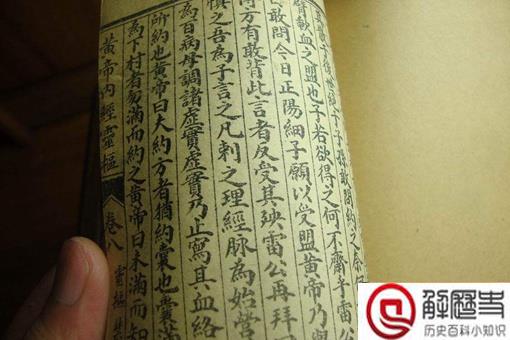 散于後世絕于子孫敢問約之奈
臂歃血之盟也子若欲得之何不齋乎雷
敢問今日正陽細子願以受盟黃帝乃與
方有敢背此言者反受其殃雷公再拜
慎之吾為子言之凡刺之理經脈為始營
為百病母調諸虛實虛實乃止寫其血絡
所約也黃帝曰夫約方者猶約囊也囊滿
為下材者勿滿而約之黃帝曰未滿而知
黃帝內經靈樞 卷八 靈樞
解歷史
历史百科小知识